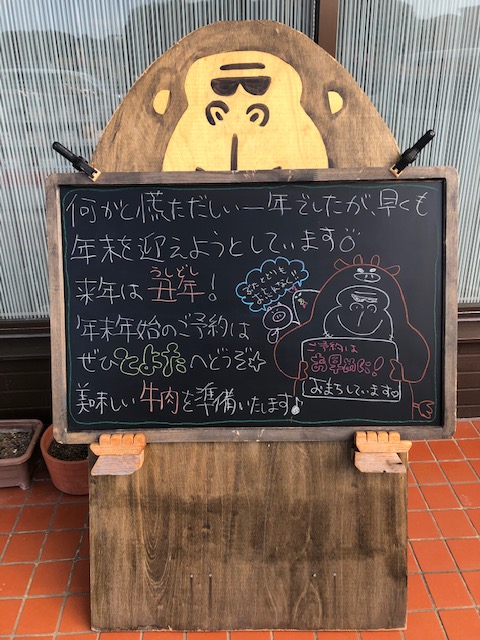 何かと慌ただしい一年でしたが、早くも
年末を迎えようとしています
うしどし
来年は丑年!
年末年始のご予約は
ぜひとよだへどうぞ☆
美味しい牛肉を準備いたします♪
ご予約は
お早めに!
おまちしています